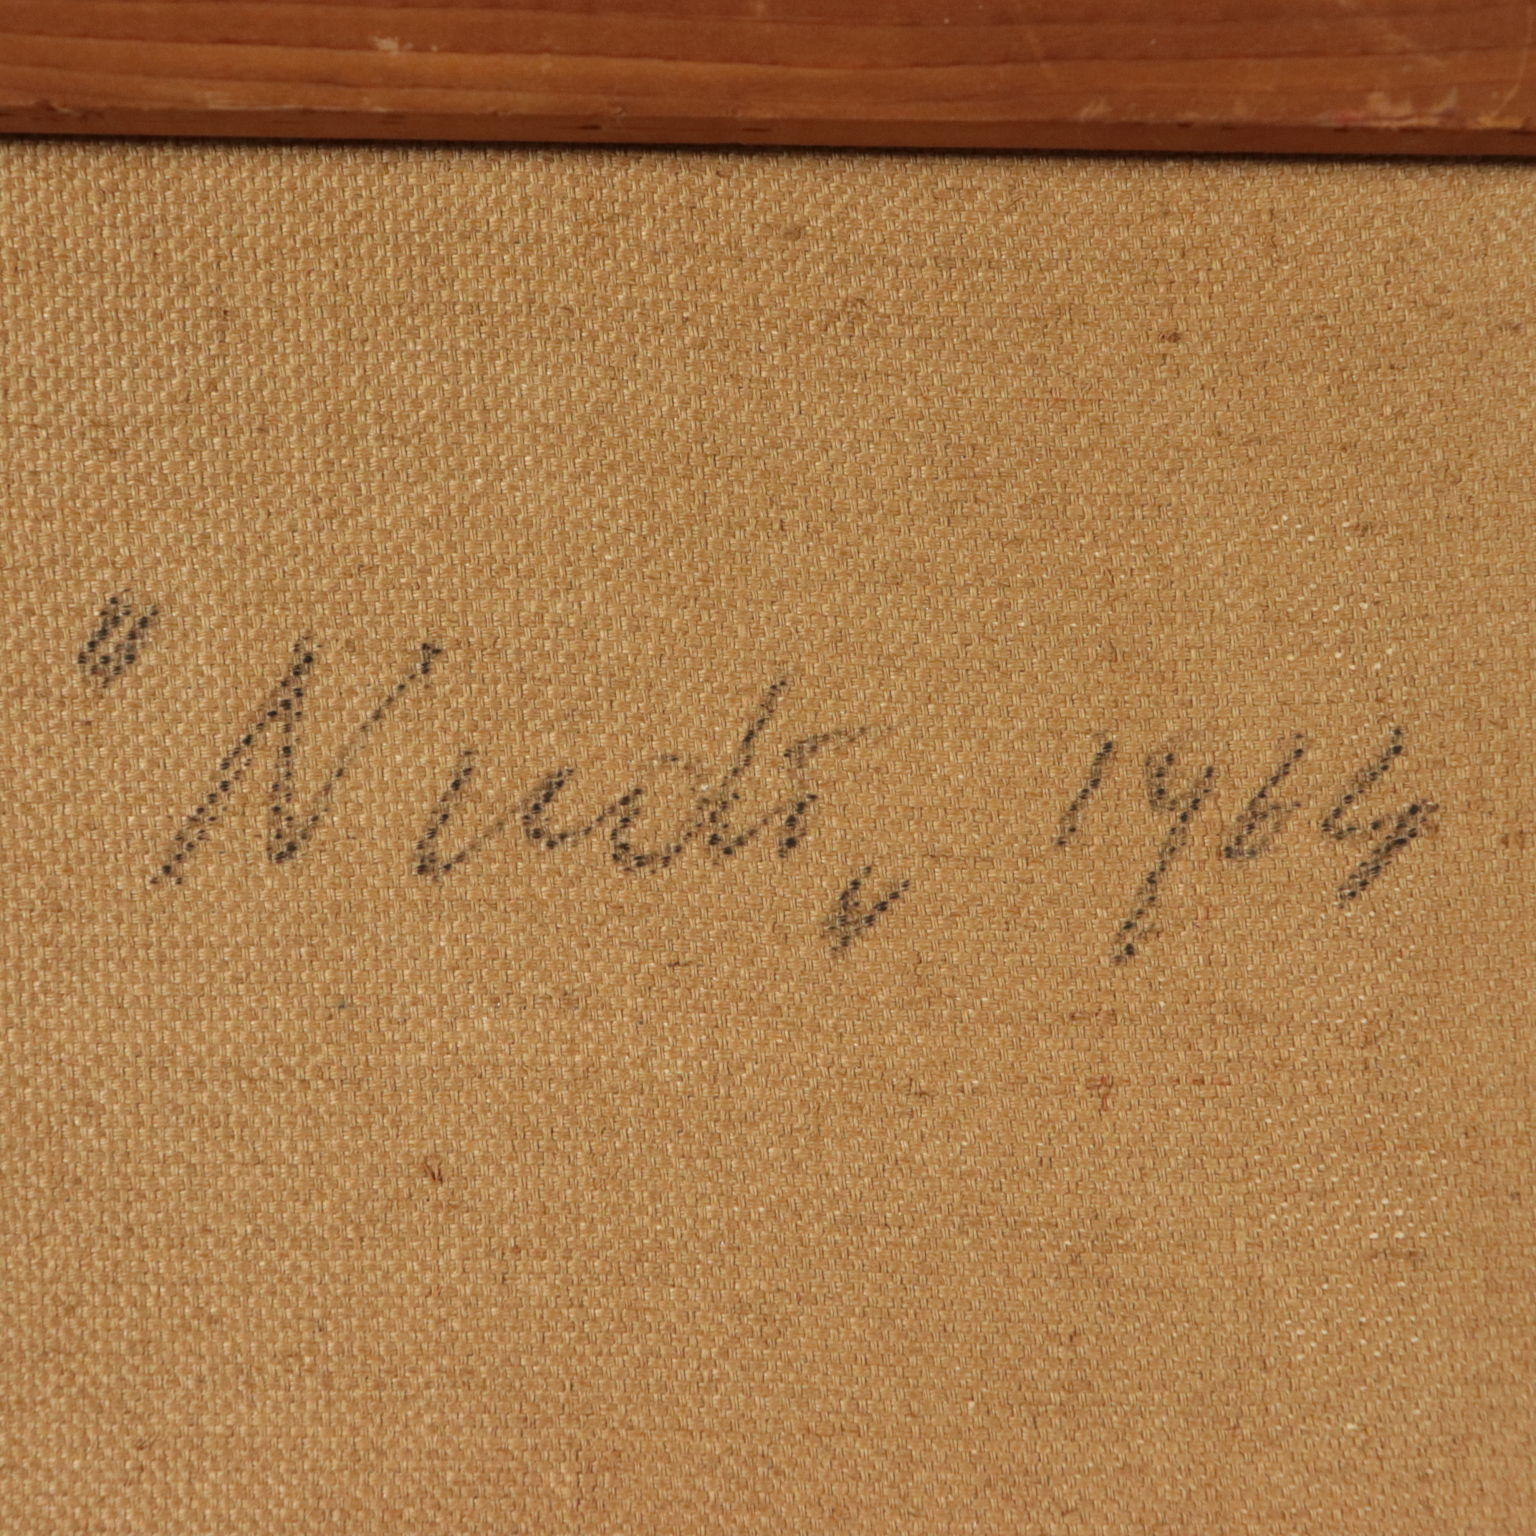 "Nudo" 1964